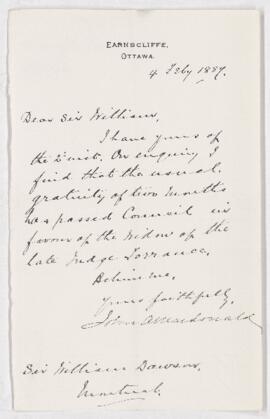 EARNSCLIFFE,
OTTAWA.
4 Feby 1887.
Dear Sir William,
I have yours of
the 2 inst. On enquiry I
find that the usual
gratuity of two months
has passed Council in
favour of the widow of the
late Judge Torrance.
Believe me,
Yours faithfully,
John A Macdonald
Sir William Dawson,
Montreal.